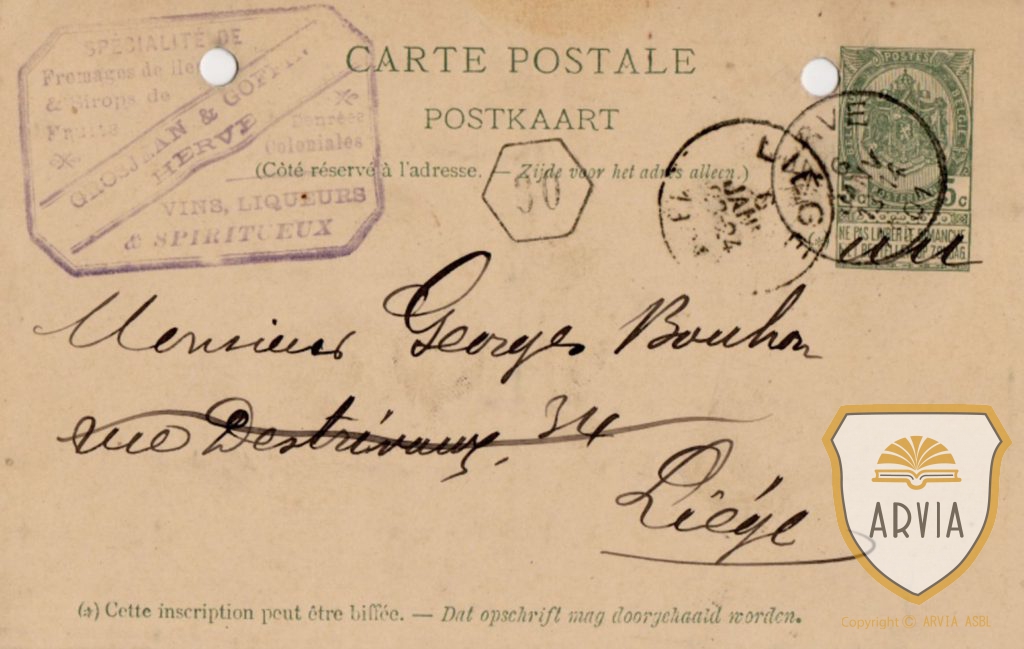 SPÉCIALITÉ DE
Fromages de
& Sirops de
Fruits
GROSJEAN & GOFFIN
HERVE
Denrées
Coloniales
VINS, LIQUEURS
& SPIRITUEUX
CARTE POSTALE
POSTKAART
(Côté réservé à l'adresse. — Zijde voor het adres alleen.)
30
LIÉGE
6
JANV
HERVE
POSTES
5c
NE PAS LIVRER LE DIMANCHE
NIET BESTELLEN OP ZONDAG
(*)
Monsieur Georges Bouhon
rue Destrivaux, 34
Liége
(*) Cette inscription peut être biffée. — Dat opschrift mag doorgehaald worden.
ARVIA
Copyright © ARVIA ASBL